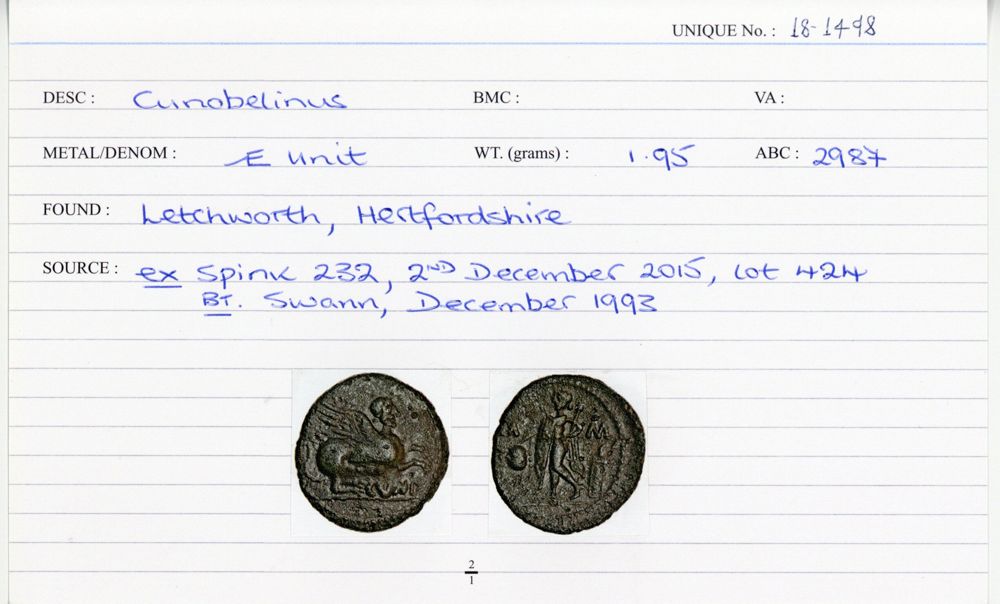 UNIQUE No. : 18-1498
DESC : Cunobelinus BMC : VA :
METAL/DENOM : Æ unit WT. (grams) : 1.95 ABC : 2987
FOUND : Letchworth, Hertfordshire
SOURCE : ex Spink 232, 2ND December 2015, lot 424
BT. Swann, December 1993
2
1